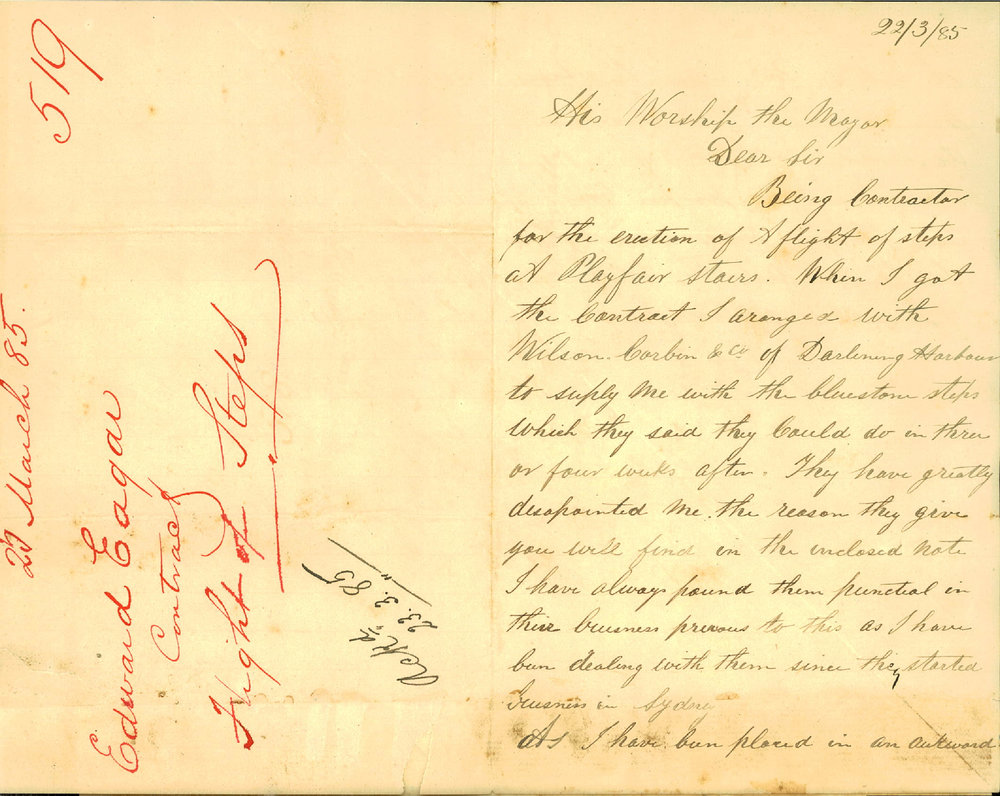 519
27 March 85.
Edward Eagar
Contract
Flight of Steps
Ackd
23.3.85
22/3/85
His Worship the Mayor
Dear Sir
Being Contractor
for the erection of A flight of steps
at Playfair stairs. When I got
the Contract I aranged with
Wilson. Corbin & Co of Darlening Harbour
to suply me with the bluestone steps
which they said they Could do in three
or four weeks after. They have greatly
disapointed me. the reason they give
you will find in the inclosed note
I have always found them punctial in
their buisness prevous to this as I have
bun dealing with them since they started
buisness in Sydney
As I have bun placed in an aukward